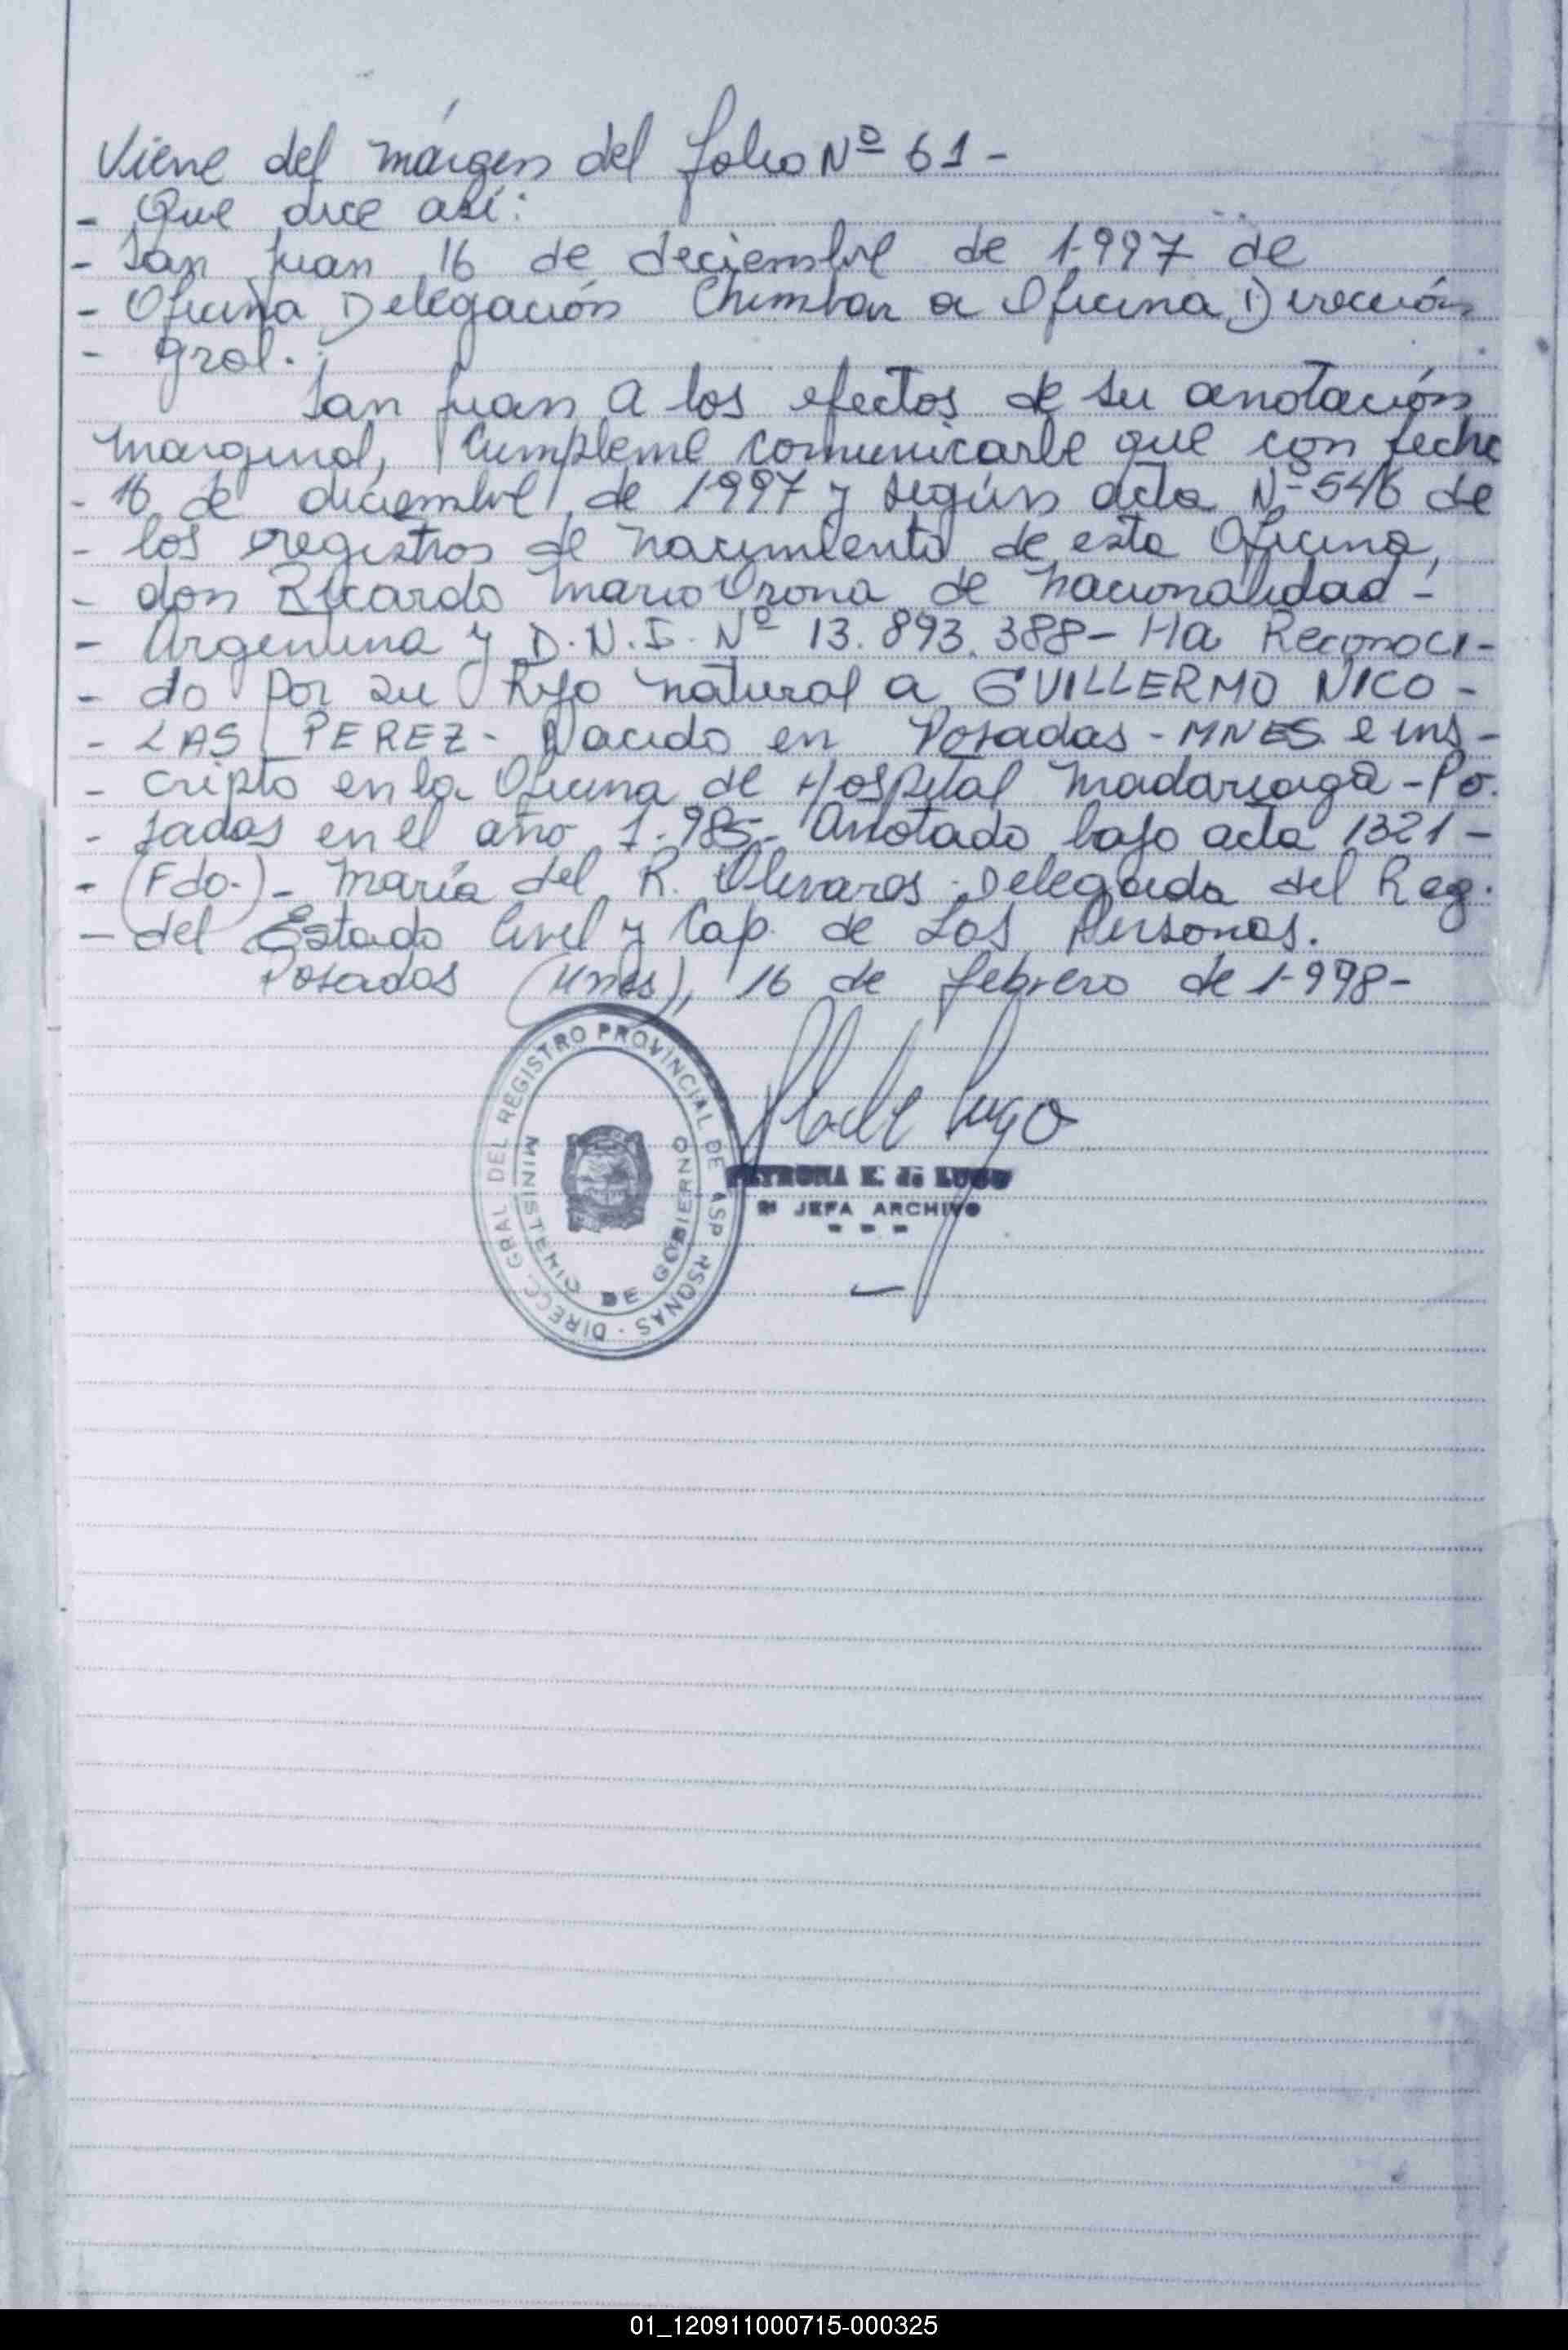 Viene del márgen del folio Nº 61 -
- Que dice así:
- San Juan 16 de deciembre de 1.997 de
- Oficina Delegación Chimbas a Oficina Dirección
- gral.
San Juan a los efectos de su anotación
marginal, cumpleme comunicarle que con fecha
- 16 de diciembre de 1997 y según acta Nº 546 de
- los registros de nacimiento de esta Oficina,
- don Ricardo Mario Orona de nacionalidad -
- Argentina y D.N.I. Nº 13.893.388 - Ha Reconoci-
- do por su hijo natural a GUILLERMO NICO -
- LAS PEREZ - Nacido en Posadas - MNES. e ins -
- cripto en la Oficina de Hospital Madariaga - Po.
- sadas en el año 1.985 - Anotado bajo acta 1321 -
- (Fdo.) - María del R. Olivares - Delegada del Reg.
- del Estado Civil y Cap. de Las Personas.
Posadas (Mnes), 16 de febrero de 1.998 -
DIRECC. GRAL DEL REGISTRO PROVINCIAL DE AS P RSONAS
MINISTERIO DE GOBIERNO
PETRONA E. de LUGO
JEFA ARCHIVO
01_120911000715-000325